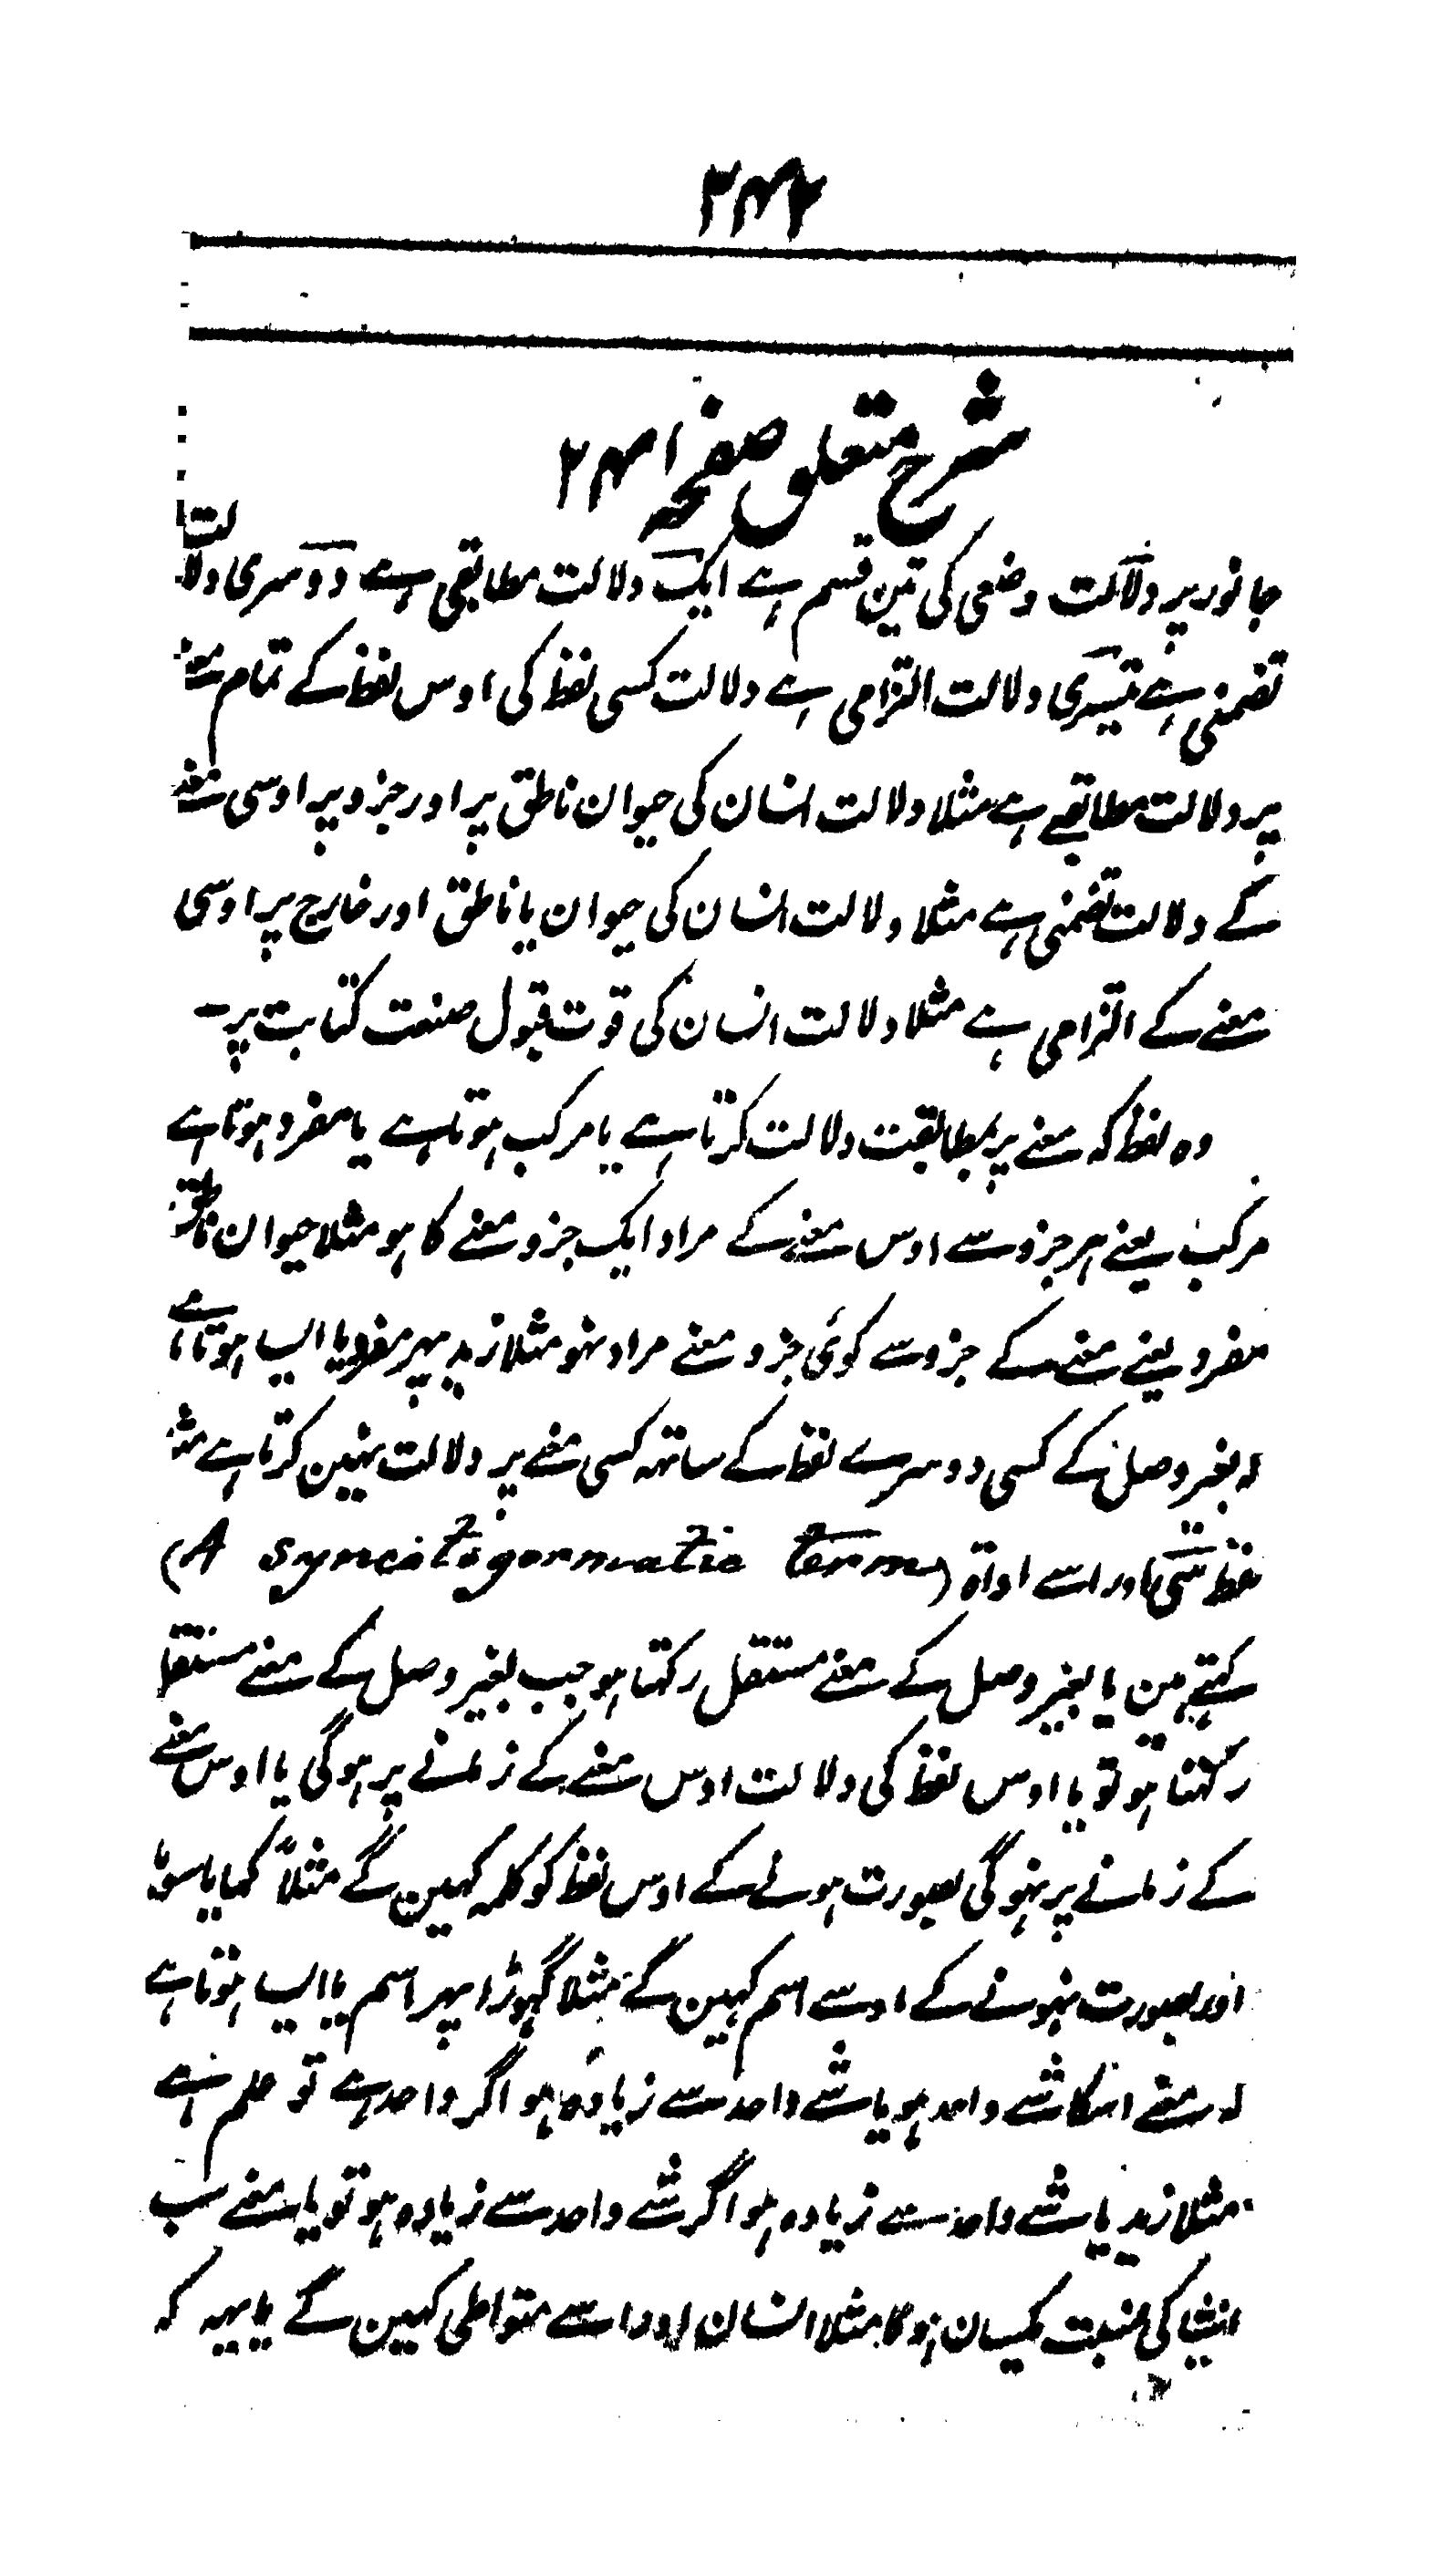 ۲۴۲
شرح متعلق صفحہ ۲۴۱
جانور پر دلالت وضعی کی تین قسم ہے ایک دلالت مطابقی ہے دوسری دلالت
تضمنی ہے تیسری دلالت التزامی ہے دلالت کسی لفظ کی اوس لفظ کے تمام معنے
پر دلالت مطابقے ہے مثلا دلالت انسان کی حیوان ناطق پر اور جزو پر اوسی معنے
کے دلالت تضمنی ہے مثلا دلالت انسان کی حیوان یا ناطق اور خارج پر اوسی
معنے کے التزامی ہے مثلا دلالت انسان کی قوت قبول صنعت کتابت پر ۔
وہ لفظ کہ معنے پر بمطابقت دلالت کرتا ہے یا مرکب ہوتا ہے یا مفرد ہوتا ہے
مرکب یعنے ہر جزو سے اوس معنے کے مراد ایک جزو معنے کا ہو مثلا حیوان ناطق
مفرد یعنے معنے کے جزو سے کوئی جزو معنے مراد نہو مثلا زید پہر مفرد یا ایسا ہوتا ہے
کہ بغیر وصل کے کسی دوسرے لفظ کے ساتھ کسی معنے پر دلالت نہین کرتا ہے مثلا
لفظ سی اور اسے اداۃ (A syncatigormatic term)
کہتے ہین یا بغیر وصل کے معنے مستقل رکہتا ہو جب بغیر وصل کے معنے مستقل
رکہتا ہو تو یا اوس لفظ کی دلالت اوس معنے کے زمانے پر ہوگی یا اوس معنے
کے زمانے پر نہوگی بصورت ہونے کے اوس لفظ کو کلمہ کہین گے مثلاً کہایا سویا
اور بصورت نہونے کے اوسے اسم کہین گے مثلا گہوڑا پہر اسم یا ایسا ہوتا ہے
کہ معنے اسکا شے واحد ہو یا شے واحد سے زیادہ ہو اگر واحد ہے تو علم ہے
مثلا زید یا شے واحد سے زیادہ ہو اگر شے واحد سے زیادہ ہو تو یا معنے سب
اشیا کی نسبت یکسان ہوگا مثلا انسان اور اسے متواطی کہین گے یا یہہ کہ